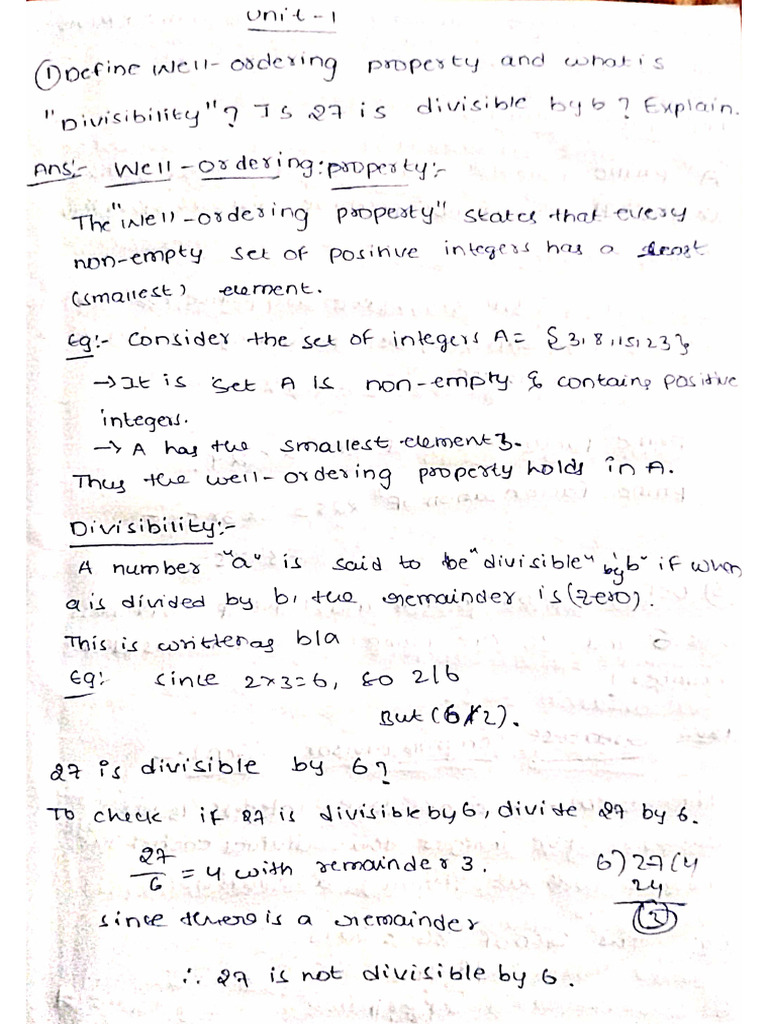 Unit-1
① Define Well-ordering property and what is
"Divisibility"? Is 27 is divisible by 6? Explain.
Ans:- Well-ordering:property:-
The "Well-ordering property" states that every
non-empty set of positive integers has a least
(smallest) element.
Eg:- Consider the set of integers A= {3,8,15,23}
→It is set A is non-empty & contains positive
integers.
→ A has the smallest element 3.
Thus the well-ordering property holds in A.
Divisibility:-
A number "a" is said to be "divisible" by "b" if when
a is divided by b, the remainder is (zero).
This is written as b|a
Eg:- since 2×3=6, so 2|6
But (6∤2).
27 is divisible by 6?
To check if 27 is divisible by 6, divide 27 by 6.
27/6 = 4 with remainder 3. 6)27(4
24
3
since there is a remainder
∴ 27 is not divisible by 6.